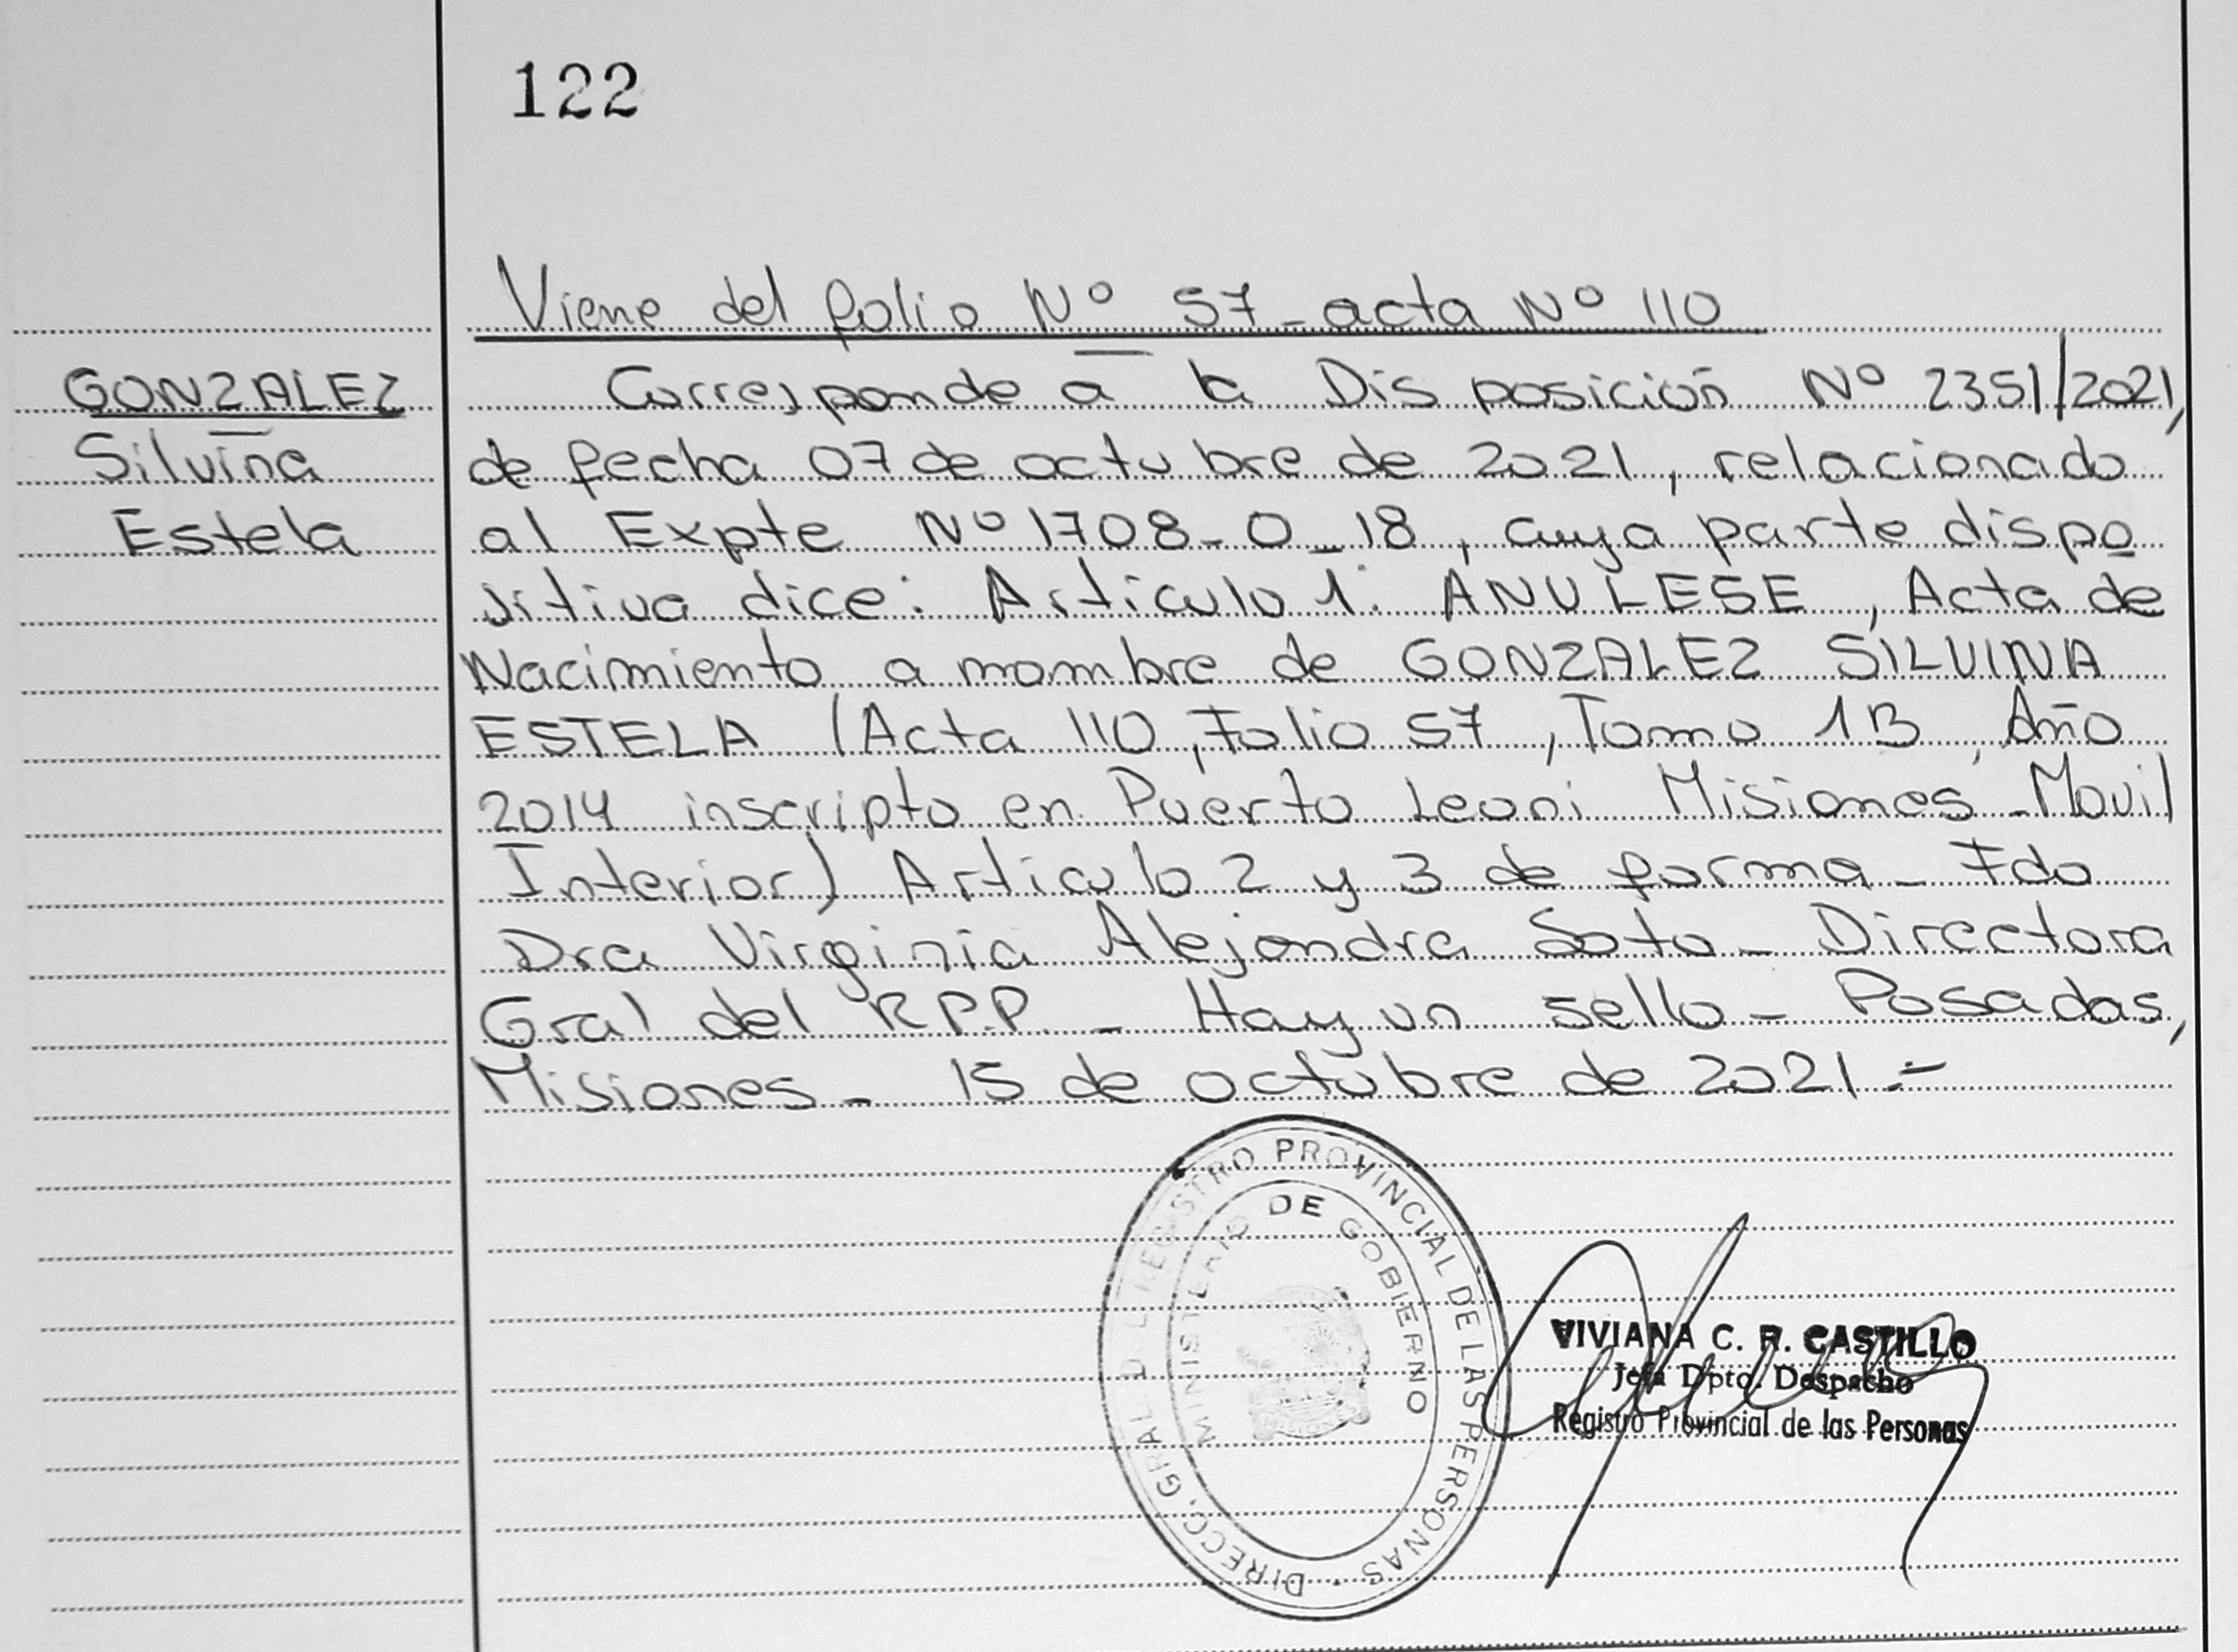 122
Viene del folio Nº 57 - acta Nº 110
GONZALEZ
Silvina
Estela
Corresponde a la Disposición Nº 2351/2021,
de fecha 07 de octubre de 2021, relacionado
al Expte Nº 1708-0-18, cuya parte dispo
sitiva dice: Articulo 1: ANULESE, Acta de
Nacimiento a nombre de GONZALEZ SILVINA
ESTELA (Acta 110, Folio 57, Tomo 1B, Año
2014 inscripto en Puerto Leoni Misiones - Movil
Interior) Articulo 2 y 3 de forma - Fdo
Dra Virginia Alejandra Soto - Directora
Gral del R.P.P. - Hay un sello - Posadas,
Misiones - 15 de octubre de 2021 =
DIRECC. GRAL DEL REGISTRO PROVINCIAL DE LAS PERSONAS
MINISTERIO DE GOBIERNO
VIVIANA C. R. CASTILLO
Jefa Dpto. Despacho
Registro Provincial de las Personas